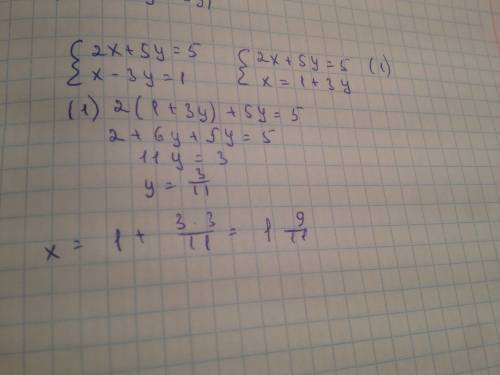 { 2x + 5y = 5    { 2x + 5y = 5 (1)
{ x - 3y = 1    { x = 1 + 3y
(1) 2(1 + 3y) + 5y = 5
2 + 6y + 5y = 5
11y = 3
y = 3/11
x = 1 + 3·3/11 = 1 9/11